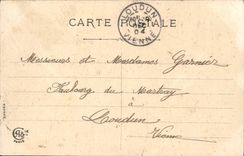 CARTE POSTALE
LOUDUN
04
VIENNE
Messieurs et Mesdames Garnier
Faubourg du Martray
à
Loudun
Vienne